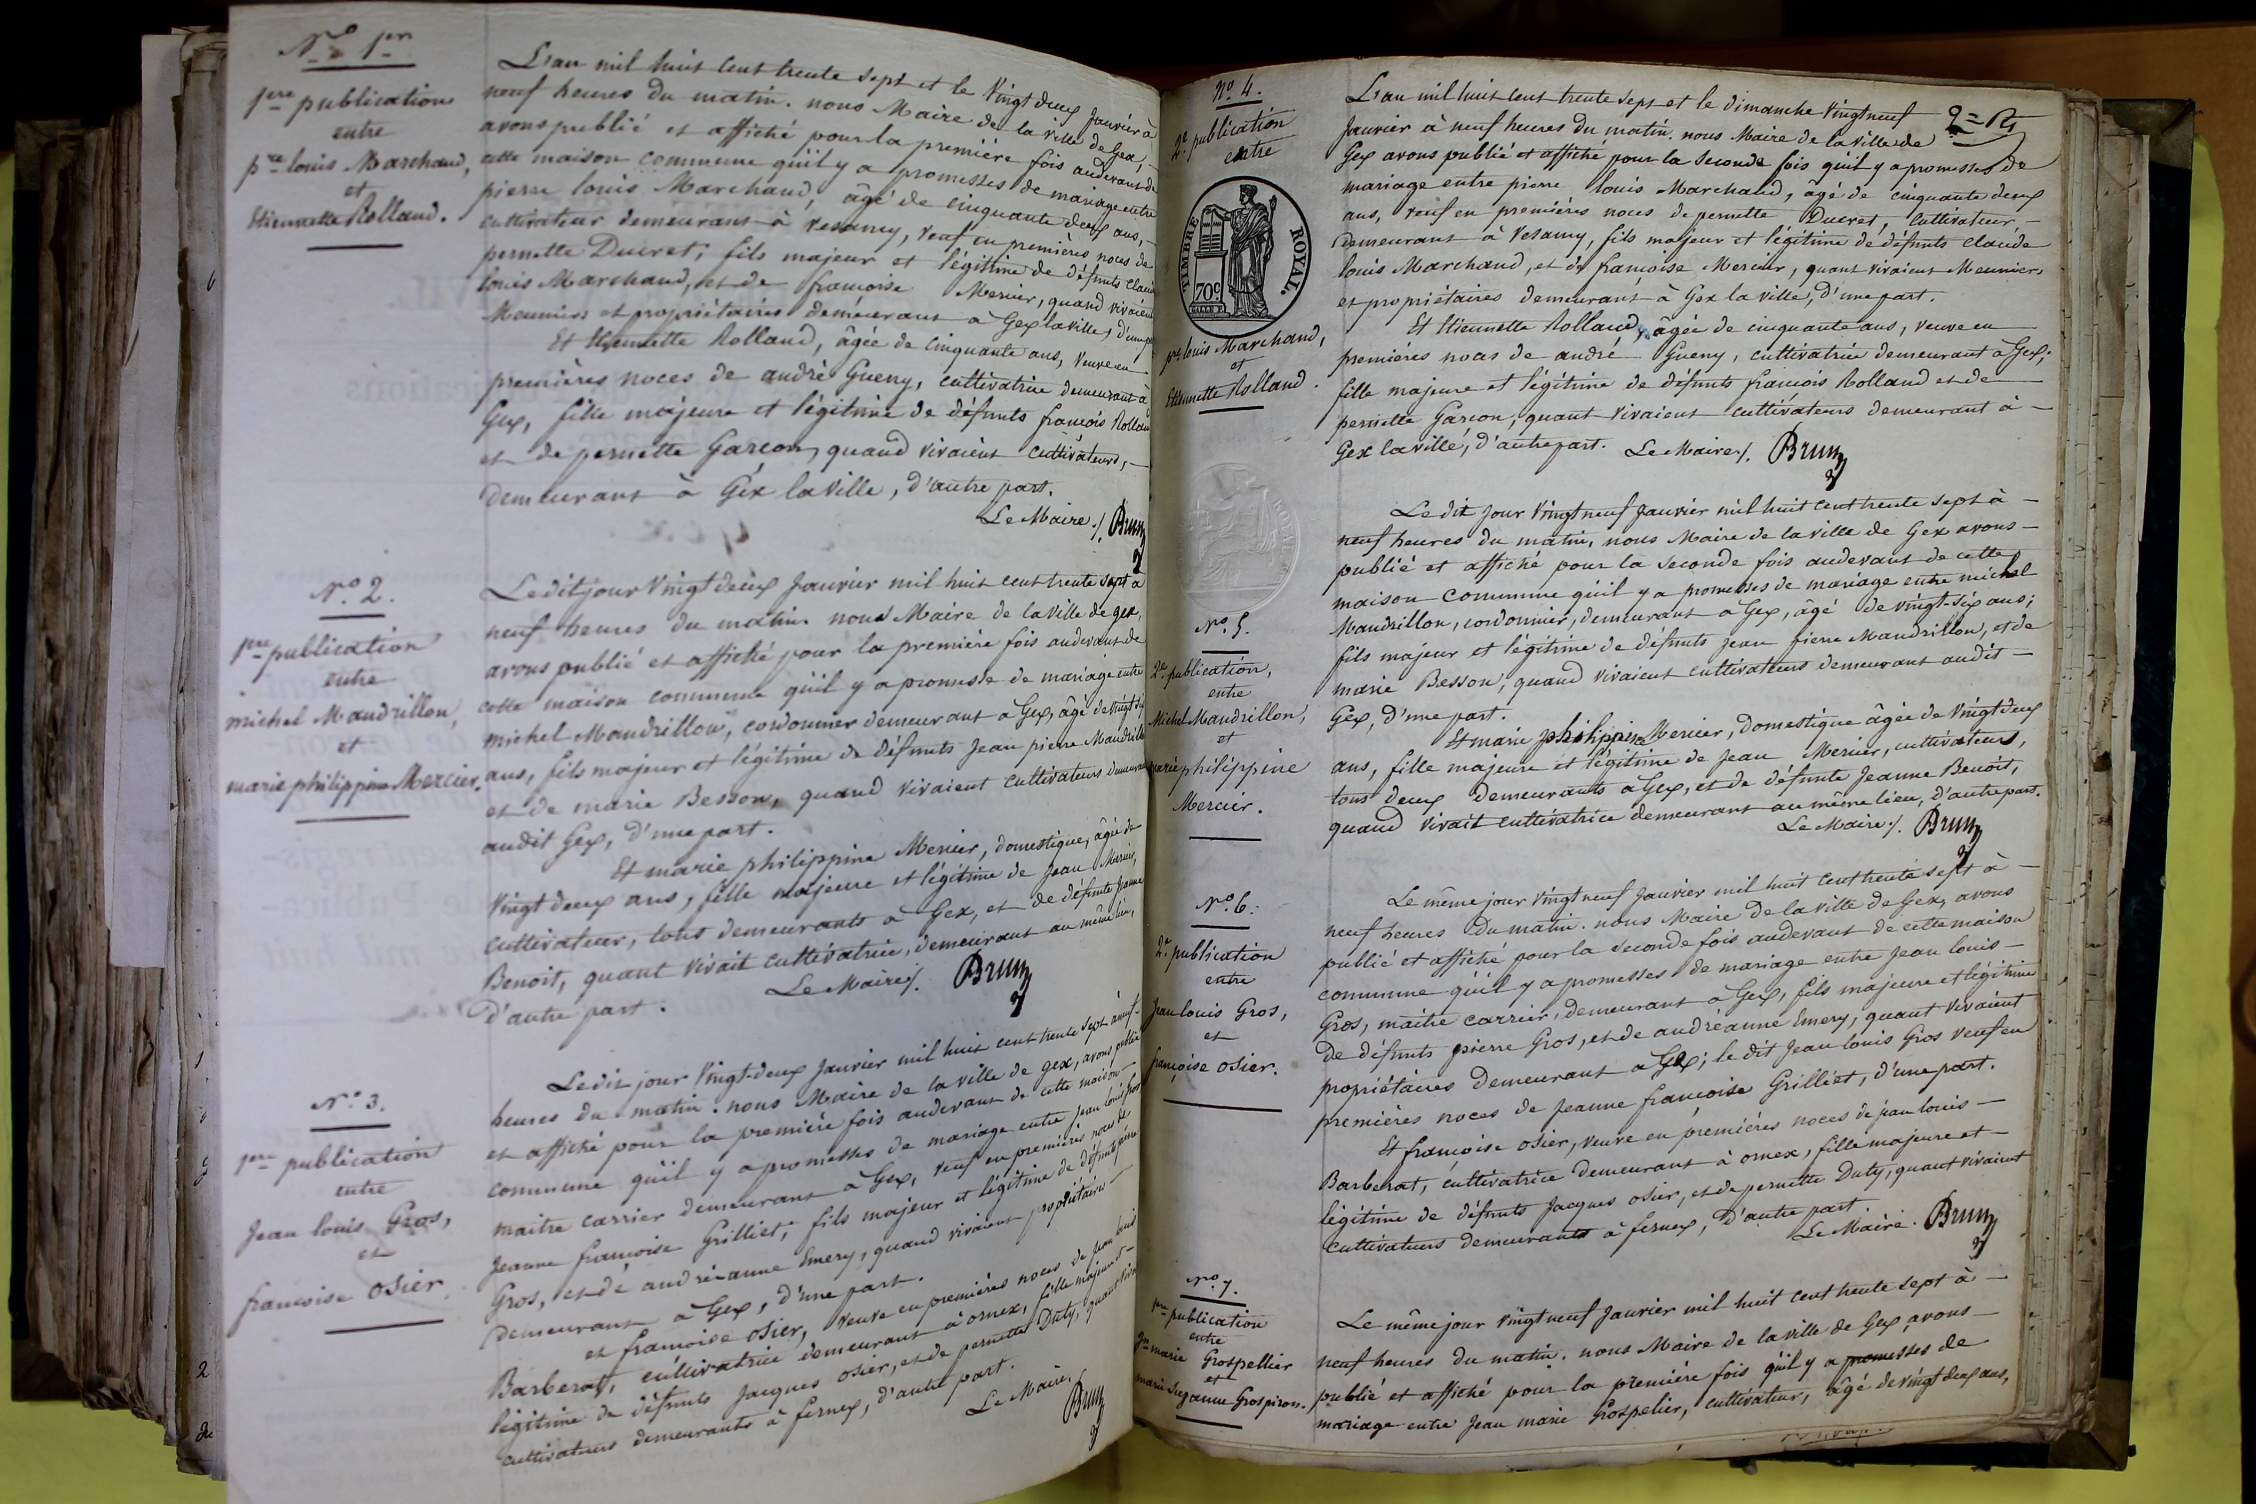 N.o 1er
1ere publication
entre
pre louis Marchand,
et
Etiennette Rolland.
L'an mil huit cent trente sept et le Vingt deux Janvier à
neuf heures du matin. nous Maire de la Ville de Gex,
avons publié et affiché pour la première fois audevant de
cette maison commune qu'il y a promesses de mariage entre
pierre louis Marchand, âgé de cinquante deux ans,
cultivateur demeurant à Vesancy, veuf en premières noces de
pernette Ducret; fils majeur et légitime de défunts Claude
louis Marchand, et de françoise Mercier, quand vivaient
Meuniers et propriétaires demeurant à Gex la ville, d'une part.
Et Etiennette Rolland, âgée de cinquante ans, veuve en
premières noces de andré Gueny, cultivatrice demeurant à
Gex, fille majeure et légitime de défunts françois Rolland
et de pernette Garcon, quand vivaient cultivateurs,
demeurant à Gex la Ville, d'autre part.
Le Maire ./. Brun
N.o 2.
1ere publication
entre
michel Maudrillon,
et
marie philippine Mercier.
Le dit jour Vingt deux Janvier mil huit cent trente sept à
neuf heures du matin. nous Maire de la Ville de gex,
avons publié et affiché pour la première fois audevant de
cette maison commune qu'il y a promesse de mariage entre
michel Maudrillon, cordonnier demeurant à Gex, âgé de vingt six
ans, fils majeur et légitime de défunts Jean pierre Maudrillon
et de marie Besson, quand vivaient cultivateurs demeurant
audit Gex, d'une part.
Et marie philippine Mercier, domestique, âgée de
Vingt deux ans, fille majeure et légitime de Jean Mercier,
cultivateur, tous demeurants à Gex, et de défunte Jeanne
Benoit, quant vivait cultivatrice, demeurant au même lieu,
d'autre part. Le Maire ./. Brun
N.o 3.
1ere publication
entre
Jean louis Gros,
et
francoise Osier.
Le dit jour Vingt-deux Janvier mil huit cent trente sept à neuf
heures du matin. nous Maire de la ville de gex, avons publié
et affiché pour la première fois audevant de cette maison
commune qu'il y a promesses de mariage entre Jean louis Gros
maitre carrier demeurant à Gex, veuf en premières noces de
Jeanne francoise Grilliet, fils majeur et légitime de défunts pierre
Gros, et de andré-anne Emery, quand vivaient propriétaires
demeurant à Gex, d'une part.
et francoise Osier, veuve en premières noces de Jean louis
Barberat, cultivatrice demeurant à ornex, fille majeure et
légitime de défunts Jacques Osier, et de pernette Duty, quant vivaient
cultivateurs demeurants à fernex, d'autre part.
Le Maire. Brun
N.o 4.
2e publication
entre
TIMBRE ROYAL.
70c
pre louis Marchand,
et
Etiennette Rolland.
2e Rt
L'an mil huit cent trente sept et le dimanche vingt neuf
Janvier à neuf heures du matin. nous Maire de la ville de
Gex avons publié et affiché pour la seconde fois qu'il y a promesses de
mariage entre pierre louis Marchand, âgé de cinquante deux
ans, veuf en premières noces de pernette Ducret, cultivateur
demeurant à Vesancy, fils majeur et légitime de défunts claude
louis Marchand, et de françoise Mercier, quant vivaient Meuniers
et propriétaires demeurant à Gex la ville, d'une part.
Et Etiennette Rolland, âgée de cinquante ans, veuve en
premières noces de andré Gueny, cultivatrice demeurant à Gex;
fille majeure et légitime de défunts francois Rolland et de
pernette Garcon, quant vivaient cultivateurs demeurant à
Gex la ville, d'autre part. Le Maire ./. Brun
N.o 5.
2e publication,
entre
Michel Maudrillon,
et
marie philippine
Mercier.
Le dit jour Vingt neuf Janvier mil huit cent trente sept à
neuf heures du matin, nous Maire de la ville de Gex avons
publié et affiché pour la seconde fois audevant de cette
maison commune qu'il y a promesses de mariage entre michel
Maudrillon, cordonnier, demeurant à Gex, âgé de vingt-six ans;
fils majeur et légitime de défunts Jean pierre Maudrillon, et de
marie Besson, quand vivaient cultivateurs demeurant audit
Gex, d'une part.
Et marie philippine Mercier, domestique âgée de vingt deux
ans, fille majeure et légitime de Jean Mercier, cultivateurs,
tous deux demeurants à Gex, et de défunte Jeanne Benoit,
quand vivait cultivatrice demeurant au même lieu, d'autre part.
Le Maire ./. Brun
N.o 6.
2e publication
entre
Jean louis Gros,
et
françoise osier.
Le même jour vingt neuf Janvier mil huit cent trente sept à
neuf heures du matin. nous Maire de la ville de Gex, avons
publié et affiché pour la seconde fois audevant de cette maison
commune qu'il y a promesses de mariage entre Jean louis
Gros, maitre carrier, demeurant à Gex, fils majeure et légitime
de défunts pierre Gros, et de andréanne Emery, quant vivaient
propriétaires demeurant à Gex; le dit Jean louis Gros veuf en
premières noces de Jeanne françoise Grilliet, d'une part.
Et françoise osier, veuve en premières noces de jean louis
Barberat, cultivatrice demeurant à ornex, fille majeure et
légitime de défunts Jacques osier, et de pernette Duty, quant vivaient
cultivateurs demeurants à fernex, d'autre part.
Le Maire. Brun
N.o 7.
1ere publication
entre
Jn marie Grospellier
et
marie Suzanne Grospiron.
Le même jour vingt neuf Janvier mil huit cent trente sept à
neuf heures du matin. nous Maire de la ville de Gex, avons
publié et affiché pour la première fois qu'il y a promesses de
mariage entre Jean marie Grospelier, cultivateur, âgé de vingt deux ans,